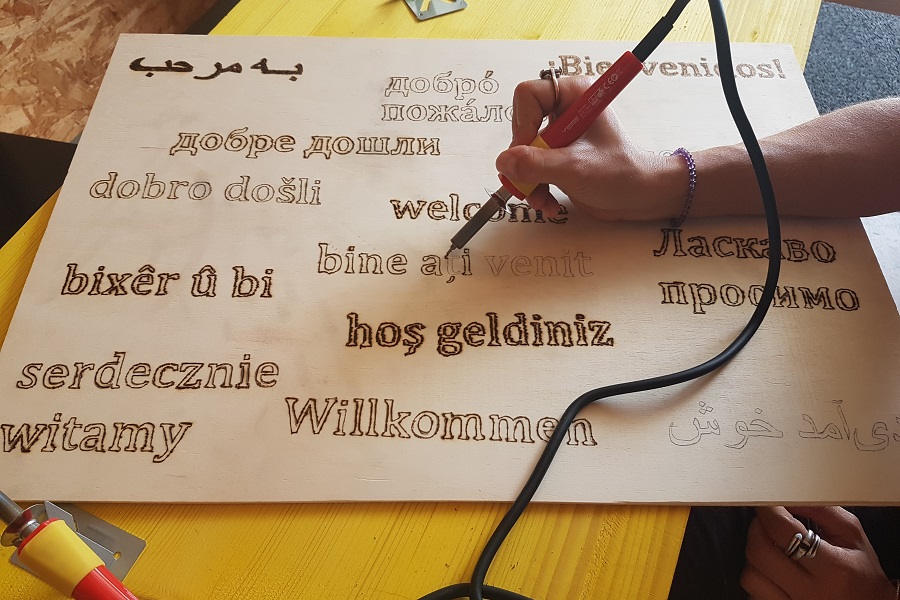 بـه مرحب
добро́
¡Bienvenidos!
добре дошли
dobro došli
welcome
bine ați venit
Ласкаво
просимо
bixêr û bi
hoş geldiniz
serdecznie
witamy
Willkommen
آمد خوش